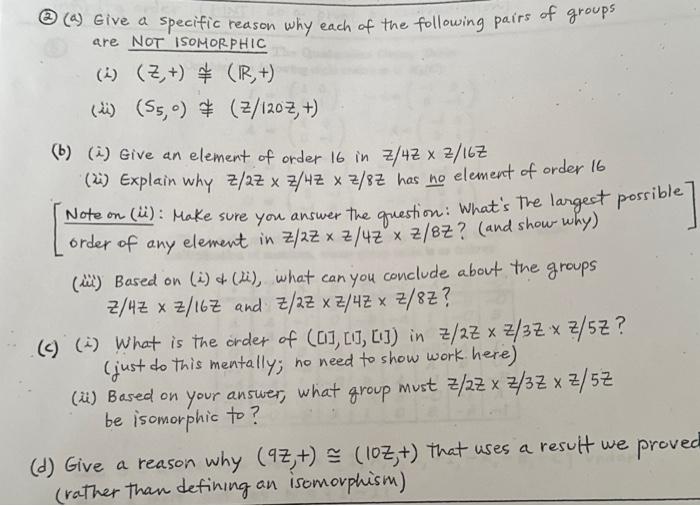 ② (a) Give a specific reason why each of the following pairs of groups
are NOT ISOMORPHIC
(i) (ℤ,+) ≇ (ℝ,+)
(ii) (S₅,∘) ≇ (ℤ/120ℤ,+)
(b) (i) Give an element of order 16 in ℤ/4ℤ × ℤ/16ℤ
(ii) Explain why ℤ/2ℤ × ℤ/4ℤ × ℤ/8ℤ has no element of order 16
[Note on (ii): Make sure you answer the question: What's The largest possible
order of any element in ℤ/2ℤ × ℤ/4ℤ × ℤ/8ℤ? (and show why)]
(iii) Based on (i) & (ii), what can you conclude about the groups
ℤ/4ℤ × ℤ/16ℤ and ℤ/2ℤ × ℤ/4ℤ × ℤ/8ℤ?
(c) (i) What is the order of ([1],[1],[1]) in ℤ/2ℤ × ℤ/3ℤ × ℤ/5ℤ?
(just do this mentally; no need to show work here)
(ii) Based on your answer, what group must ℤ/2ℤ × ℤ/3ℤ × ℤ/5ℤ
be isomorphic to?
(d) Give a reason why (9ℤ,+) ≅ (10ℤ,+) that uses a result we proved
(rather than defining an isomorphism)